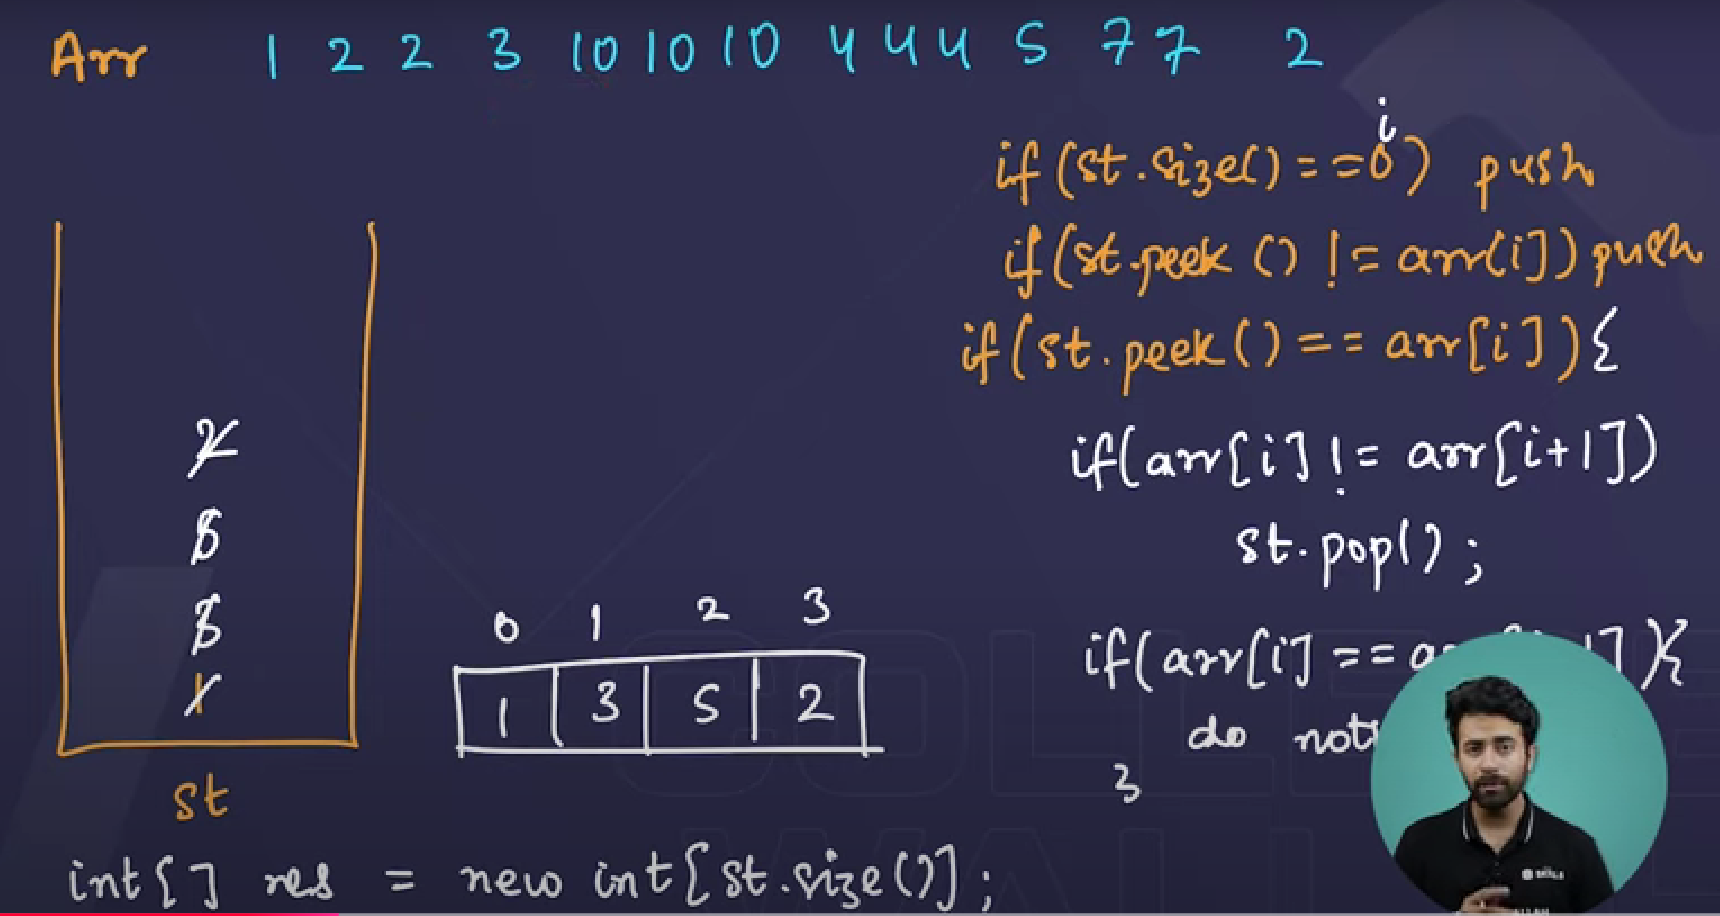 Arr 1 2 2 3 10 10 10 4 4 4 5 7 7 2
i
if (st.size() == 0) push
if (st.peek () != arr[i]) push
if (st.peek() == arr[i]) {
if(arr[i] != arr[i+1])
st.pop();
if(arr[i] ==
do
}
2
5
3
1
st
0 1 2 3
1 3 5 2
int[] res = new int[st.size()];